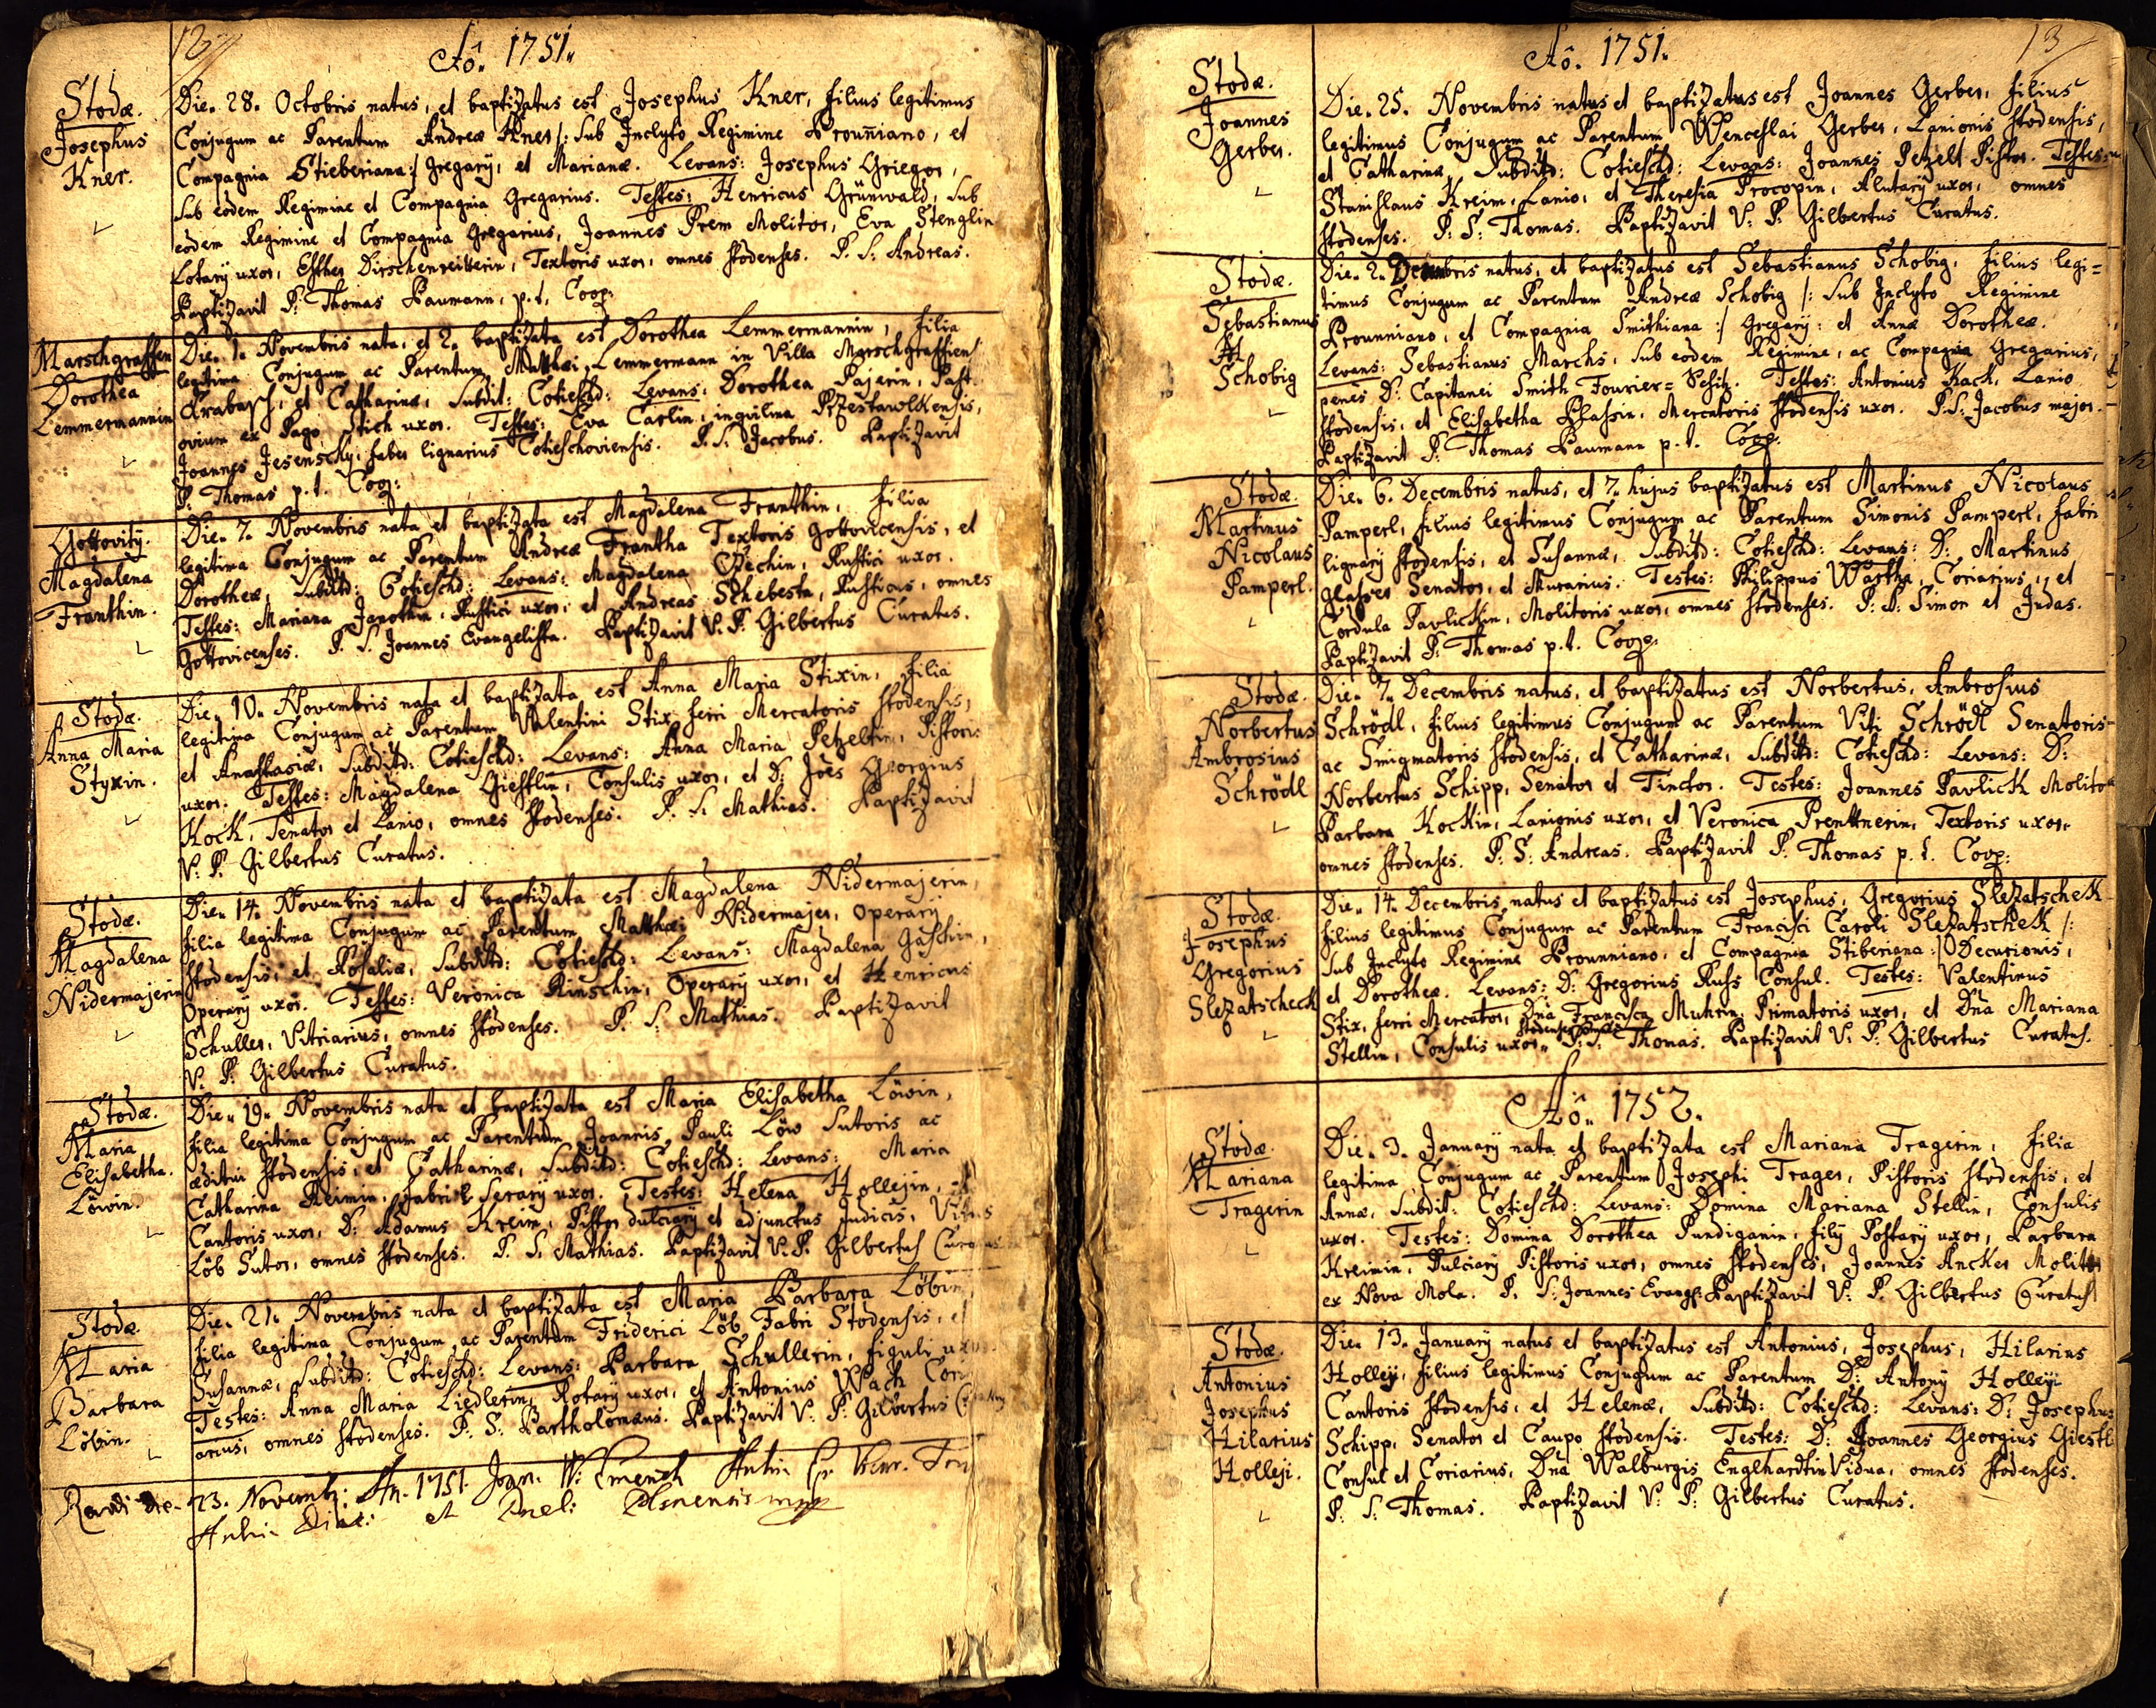 12
Aô. 1751.
Stodæ.
Josephus
Kner.
Die. 28. Octobris natus, et baptizatus est Josephus Kner, filius legitimus
Conjugum ac Parentum Andreæ Kner /: sub Inclyto Regimine Brouniano, et
Compagnia Stieberiana :/ gregarÿ, et Marianæ. Levans: Josephus Grieger,
sub eodem Regimine et Compagnia Gregarius. Testes: Henricus Grünwald, sub
eodem Regimine et Compagnia Gregarius, Joannes Prem Molitor, Eva Stenglin
Lotarÿ uxor, Esther Dirschenreitterin, Textoris uxor, omnes stodenses. P. S. Andreas.
Baptizavit P. Thomas Baumann, p. t. Coop.
Marschgraffen
Dorothea
Lemmermannin
Die. 1. Novembris nata, et 2. baptizata est Dorothea Lemmermannin, filia
legitima Conjugum ac Parentum Matthæi Lemmermann in Villa Marschgraffiens
Krabasch, et Catharinæ, Subdit: Cotieschd: Levans: Dorothea Pajerin, Past
ovium ex Pago Stich uxor. Testes: Eva Carlin, inqvilina Przestawlkensis,
Joannes Jesenscky, faber lignarius Cotieschoviensis. P. S. Jacobus. Baptizavit
P. Thomas p. t. Coop:
Gottovitÿ.
Magdalena
Franthin.
Die. 7. Novembris nata et baptizata est Magdalena Franthin, filia
legitima Conjugum ac Parentum Andreæ Frantha Textoris Gottovicensis, et
Dorotheæ, Subditd: Cotieschd: Levans: Magdalena Czechin, Rustici uxor.
Testes: Mariana Janothin, Rustici uxor, et Andreas Schebesta, Rusticus, omnes
Gottovicenses. P. S. Joannes Evangelista. Baptizavit V. P. Gilbertus Curatus.
Stodæ.
Anna Maria
Styxin.
Die. 10. Novembris nata et baptizata est Anna Maria Stixin, filia
legitima Conjugum ac Parentum Valentini Stix ferri Mercatoris stodensis,
et Anastasiæ, Subditd: Cotieschd: Levans: Anna Maria Petzeltin, Pistoris
uxor. Testes: Magdalena Giestlin, Consulis uxor, et D: Jões Georgius
Kock, Senator et Lanio, omnes stodenses. P. S. Mathias. Baptizavit
V: P: Gilbertus Curatus.
Stodæ.
Magdalena
Nidermajerin
Die. 14. Novembris nata et baptizata est Magdalena Nidermajerin,
filia legitima Conjugum ac Parentum Matthæi Nidermajer, Operarÿ
stodensis, et Rosaliæ, Subditd: Cotieschd: Levans: Magdalena Gaschin,
Operarÿ uxor. Testes: Veronica Rinschin, Operarÿ uxor, et Henricus
Schuller, Vitriarius, omnes stodenses. P. S. Mathias. Baptizavit
V. P: Gilbertus Curatus.
Stodæ.
Maria
Elisabetha.
Löwin.
Die. 19. Novembris nata et baptizata est Maria Elisabetha Löwin,
filia legitima Conjugum ac Parentum Joannis Pauli Löw Sutoris ac
æditui stodensis, et Catharinæ, Subditd: Cotieschd: Levans: Maria
Catharina Reimin, fabri Serarÿ uxor. Testes: Helena Hollejin,
Cantoris uxor, D: Adamus Kreim, Pistor dulciarÿ et adjunctus Judicis, Vitus
Löb Sutor, omnes stodenses. P. S. Mathias. Baptizavit V. P. Gilbertus Curatus
Stodæ.
Maria
Barbara
Löbin.
Die. 21. Novembris nata et baptizata est Maria Barbara Löbin,
filia legitima Conjugum ac Parentum Friderici Löb Fabri Stodensis, et
Susannæ, Subditd: Cotieschd: Levans: Barbara Schullerin, figuli uxor
Testes: Anna Maria Liedlerin, Rotarÿ uxor, et Antonius Wach Cori
arius, omnes stodenses. P. S. Bartholomæus. Baptizavit V: P: Gilbertus Curatus
Revidi die 23. Novembr: An. 1751. Joan. W:
et Plsnensis mpp
13
Aô. 1751.
Stodæ.
Joannes
Gerber.
Die. 25. Novembris natus et baptizatus est Joannes Gerber, filius
legitimus Conjugum ac Parentum Wenceslai Gerber, Lanionis stodensis,
et Catharinæ, Subditd: Cotieschd: Levans: Joannes Petzelt Pistor. Testes:
Stanislaus Kreim, Lanio, et Theresia Procopin, Alutarÿ uxor, omnes
stodenses. P: S: Thomas. Baptizavit V: P: Gilbertus Curatus.
Stodæ.
Sebastianus
Schobig
Die. 2. Decembris natus, et baptizatus est Sebastianus Schobig, filius legi=
timus Conjugum ac Parentum Andreæ Schobig /: sub Inclyto Regimine
Brounniano, et Compagnia Smithiana :/ gregarÿ: et Annæ Dorotheæ.
Levans: Sebastianus Marchs, sub eodem Regimine, ac Compagnia Gregarius,
penes D: Capitanei Smith Fourier= Schitz. Testes: Antonius Kack, Lanio
stodensis, et Elisabetha Blassin, Mercatoris stodensis uxor. P. S: Jacobus major.
Baptizavit P: Thomas Baumann p. t. Coop:
Stodæ.
Martinus
Nicolaus
Pamperl.
Die. 6. Decembris natus, et 7. hujus baptizatus est Martinus Nicolaus
Pamperl, filius legitimus Conjugum ac Parentum Simonis Pamperl, fabri
lignarÿ stodensis, et Susannæ, Subditd: Cotieschd: Levans: D: Martinus
Glaser Senator, et Murarius. Testes: Philippus Wartha, Coriarius, et
Cordula Pavlickin, Molitoris uxor, omnes stodenses. P: S: Simon et Judas.
Baptizavit P: Thomas p. t. Coop:
Stodæ.
Norbertus
Ambrosius
Schrödl
Die. 7. Decembris natus, et baptizatus est Norbertus, Ambrosius
Schrödl, filius legitimus Conjugum ac Parentum Viti Schrödl Senatoris
ac Smigmatoris stodensis, et Catharinæ, Subditd: Cotieschd: Levans: D:
Norbertus Schipp, Senator et Tinctor. Testes: Joannes Pavlick Molitor
Barbara Kockin, Lanionis uxor, et Veronica Prenttnerin, Textoris uxor,
omnes stodenses. P: S: Andreas. Baptizavit P: Thomas p. t. Coop:
Stodæ.
Josephus
Gregorius
Slezatscheck
Die. 14. Decembris natus et baptizatus est Josephus, Gregorius Slezatscheck
filius legitimus Conjugum ac Parentum Francisci Caroli Slezatscheck /:
sub Inclyto Regimine Brounniano, et Compagnia Stiberiana :/ Decurionis,
et Dorotheæ. Levans: D: Gregorius Russ Consul. Testes: Valentinus
Stix, ferri Mercator, Dña Francisca Muhrin, Primatoris uxor, et Dña Mariana
Stellin, Consulis uxor, stodenses omnes P: S: Thomas. Baptizavit V: P: Gilbertus Curatus.
Aô. 1752.
Stodæ.
Mariana
Tragerin
Die. 3. Januarÿ nata et baptizata est Mariana Tragerin, filia
legitima Conjugum ac Parentum Josephi Trager, Pistoris stodensis, et
Annæ, Subdit: Cotieschd: Levans: Domina Mariana Stellin, Consulis
uxor. Testes: Domina Dorothea Pundiganin, filÿ Postarÿ uxor, Barbara
Kreimin, Dulciarÿ Pistoris uxor, omnes stodenses, Joannes Ancker Molitor
ex Nova Mola. P. S: Joannes Evange: Baptizavit V: P. Gilbertus Curatus
Stodæ.
Antonius
Josephus
Hilarius
Holleji.
Die. 13. Januarÿ natus et baptizatus est Antonius, Josephus, Hilarius
Holleji, filius legitimus Conjugum ac Parentum D: Antonÿ Holleji
Cantoris stodensis, et Helenæ, Subditd: Cotieschd: Levans: D: Josephus
Schipp, Senator et Caupo stodensis. Testes: D: Joannes Georgius Giestl
Consul et Coriarius, Dña Walburgis Englhardtin Vidua, omnes stodenses.
P: S: Thomas. Baptizavit V: P: Gilbertus Curatus.